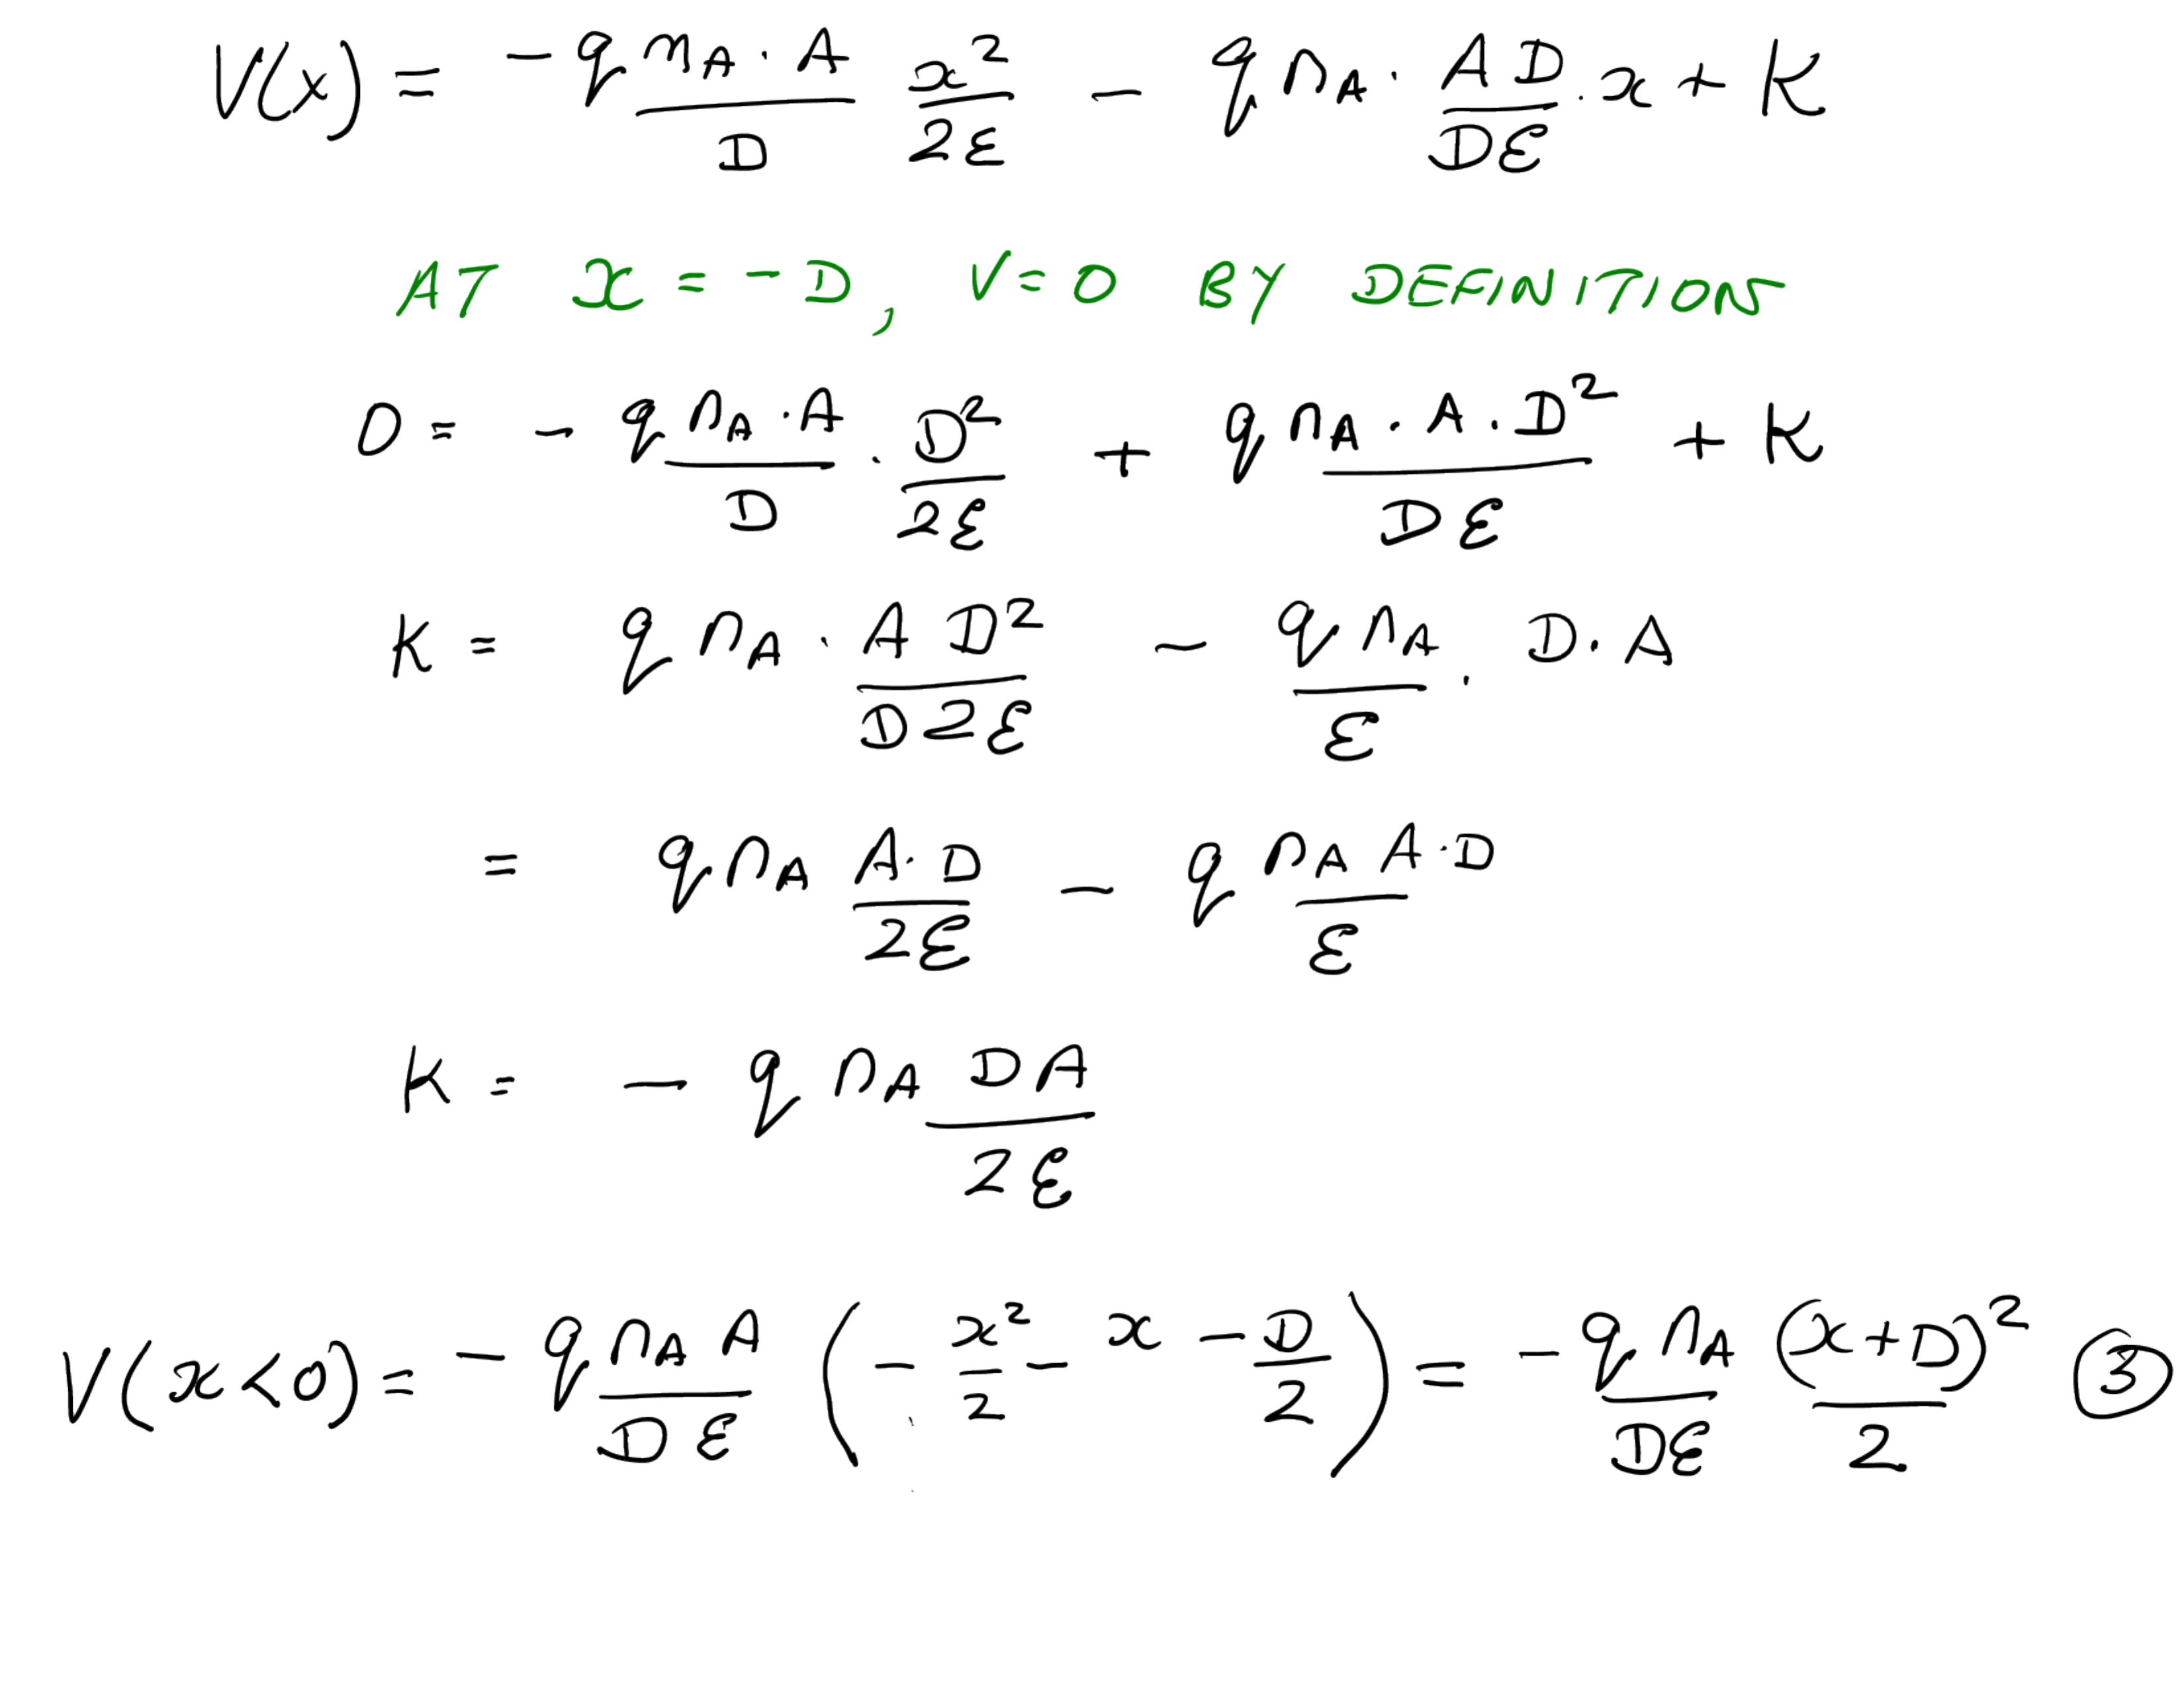 V(x) = -q n_A · A / D  x² / 2ε - q n_A · A D / Dε · x + K
AT x = -D, V = 0 BY DEFINITION
0 = - q n_A · A / D · D² / 2ε + q n_A · A · D² / Dε + K
K = q n_A · A D² / D2ε - q n_A / ε · D · A
= q n_A A · D / 2ε - q n_A A · D / ε
K = - q n_A DA / 2ε
V(x<0) = - q n_A A / Dε ( - x² / 2 - x - D / 2 ) = - q n_A / Dε (x+D)² / 2 ③